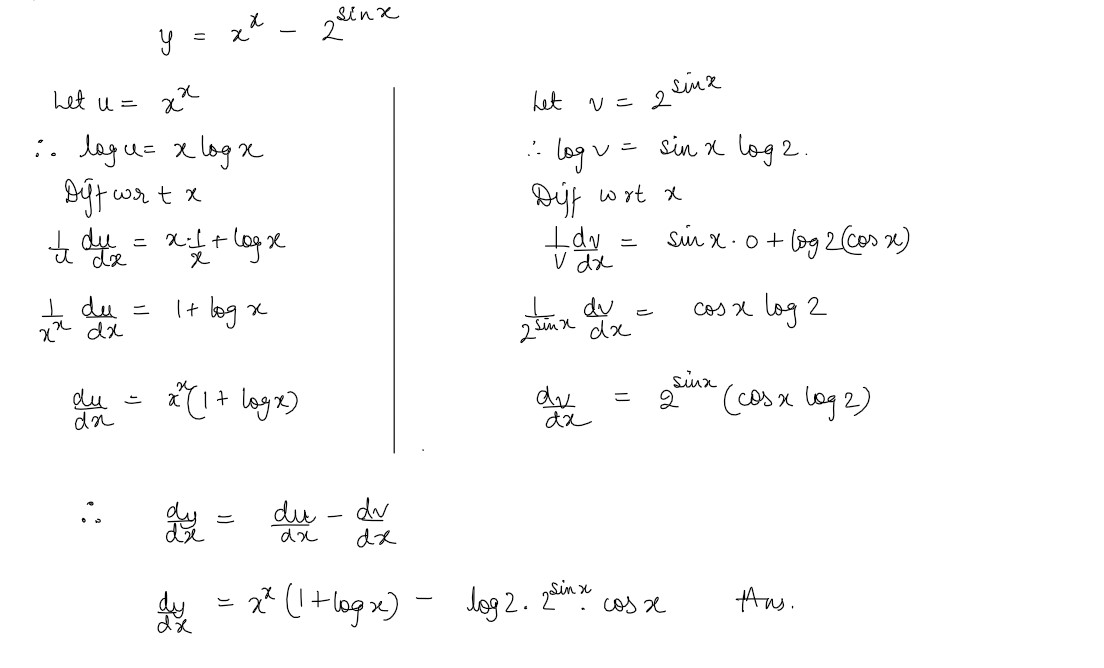 y = x^x - 2^sinx
Let u = x^x
∴ log u = x log x
Diff wrt x
1/u du/dx = x·1/x + log x
1/x^x du/dx = 1 + log x
du/dx = x^x(1 + log x)
Let v = 2^sinx
∴ log v = sin x log 2.
Diff wrt x
1/v dv/dx = sin x · 0 + log 2(cos x)
1/2^sinx dv/dx = cos x log 2
dv/dx = 2^sinx (cos x log 2)
∴ dy/dx = du/dx - dv/dx
dy/dx = x^x (1 + log x) - log 2 · 2^sinx · cos x Ans.